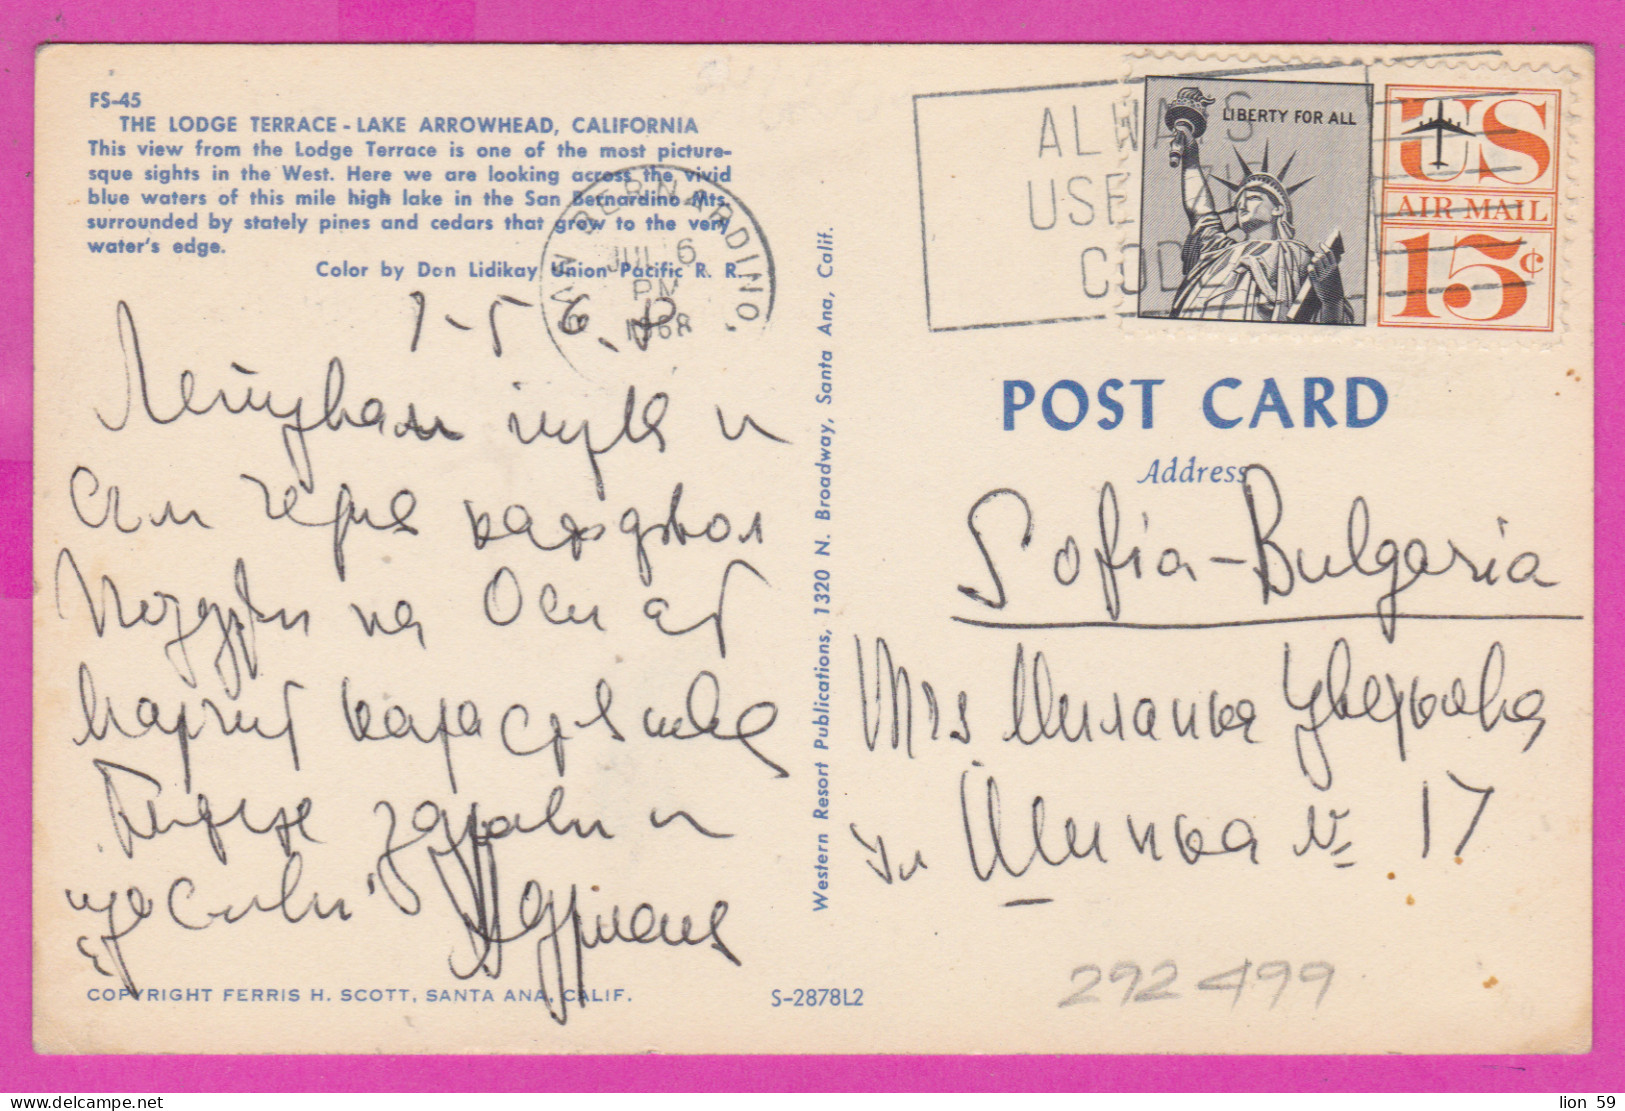 FS-45
THE LODGE TERRACE - LAKE ARROWHEAD, CALIFORNIA
This view from the Lodge Terrace is one of the most picture-
sque sights in the West. Here we are looking across the vivid
blue waters of this mile high lake in the San Bernardino Mts.
surrounded by stately pines and cedars that grow to the very
water's edge.
Color by Don Lidikay Union Pacific R. R.
SAN BERNARDINO,
JUL 6
PM
1968
и
съм через
Поздрави на
здрави и
щастливи
COPYRIGHT FERRIS H. SCOTT, SANTA ANA, CALIF.
S-2878L2
Western Resort Publications, 1320 N. Broadway, Santa Ana, Calif.
ALWAYS
USE ZIP
CODE
LIBERTY FOR ALL
US
AIR MAIL
15¢
POST CARD
Address
Sofia-Bulgaria
Mrs Миланка
ул Шипка № 17
292499
lion 59